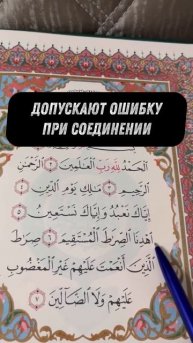 ДОПУСКАЮТ ОШИБКУ
ПРИ СОЕДИНЕНИИ
الْحَمْدُ لِلَّهِ رَبِّ الْعَالَمِينَ ٢ الرَّحْمَٰنِ
الرَّحِيمِ ٣ مَالِكِ يَوْمِ الدِّينِ ٤
إِيَّاكَ نَعْبُدُ وَإِيَّاكَ نَسْتَعِينُ ٥
اهْدِنَا الصِّرَاطَ الْمُسْتَقِيمَ ٦ صِرَاطَ
الَّذِينَ أَنْعَمْتَ عَلَيْهِمْ غَيْرِ الْمَغْضُوبِ
عَلَيْهِمْ وَلَا الضَّالِّينَ ٧